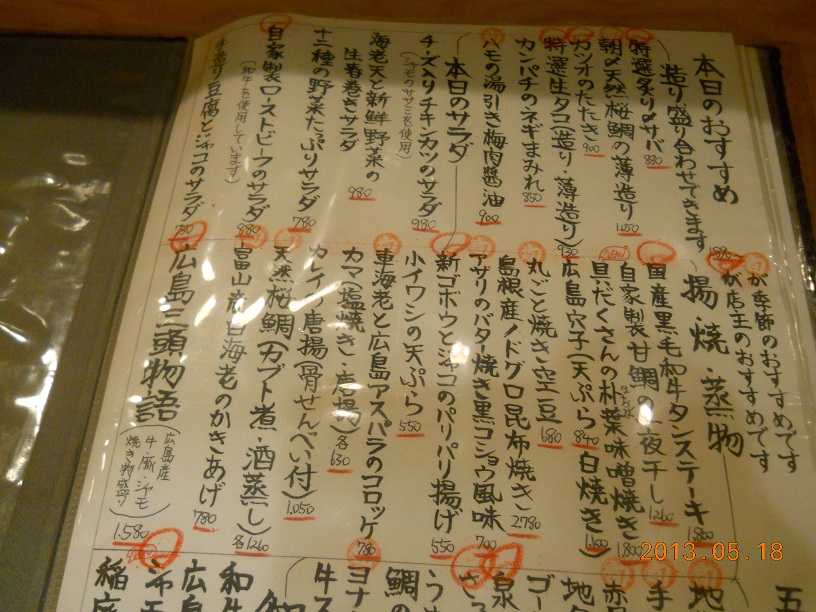 本日のおすすめ
造り盛り合わせできます
特選炙りサバ 880
朝〆天然桜鯛の薄造り 1,050
カツオのたたき 900
特選生タコ(造り・薄造り) 930
カンパチのネギまみれ 850
ハモの湯引き梅肉醤油 900
本日のサラダ
チーズ入りチキンカツのサラダ 980
(シャモのササミを使用)
海老天と新鮮野菜の
生春巻きサラダ 980
十二種の野菜たっぷりサラダ 780
自家製ローストビーフのサラダ 880
(和牛を使用しています)
手造り豆腐とジャコのサラダ 780
が季節のおすすめです
が店主のおすすめです
揚・焼・蒸物
国産黒毛和牛タンステーキ 1,800
自家製甘鯛の一夜干し 1,260
具だくさんの朴葉味噌焼き 1,800
広島穴子(天ぷら 840 白焼き)
丸ごと焼き空豆 680
島根産ノドグロ昆布焼き 2,780
アサリのバター焼き黒コショウ風味 700
新ゴボウとジャコのパリパリ揚げ 550
小イワシの天ぷら 550
車海老と広島アスパラのコロッケ 780
カマ(塩焼き・唐揚) 各630
カレイ唐揚(骨せんべい付) 1,050
天然桜鯛(カブト煮・酒蒸し) 各1,260
富山産白海老のかきあげ 780
広島三頭物語
(広島産
牛・豚・シャモ
焼き物盛り)
1,580
2013.05.18